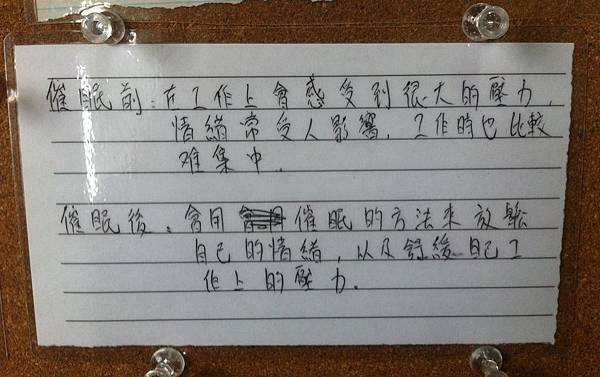 催眠前：在工作上會感受到很大的壓力，
情緒常受人影響，工作時也比較
难集中.
催眠後：會用催眠的方法來放鬆
自己的情緒，以及舒緩自己工
作上的壓力.